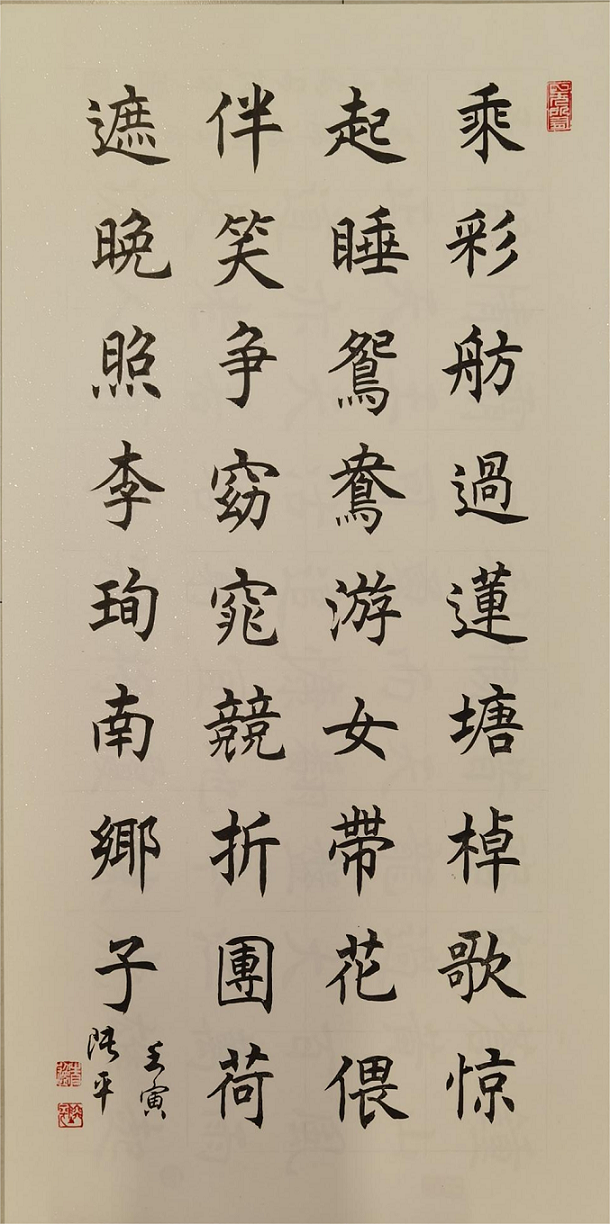 乘彩舫過蓮塘棹歌惊
起睡鴛鴦游女帶花偎
伴笑争窈窕競折團荷
遮晚照李珣南鄉子
壬寅
平